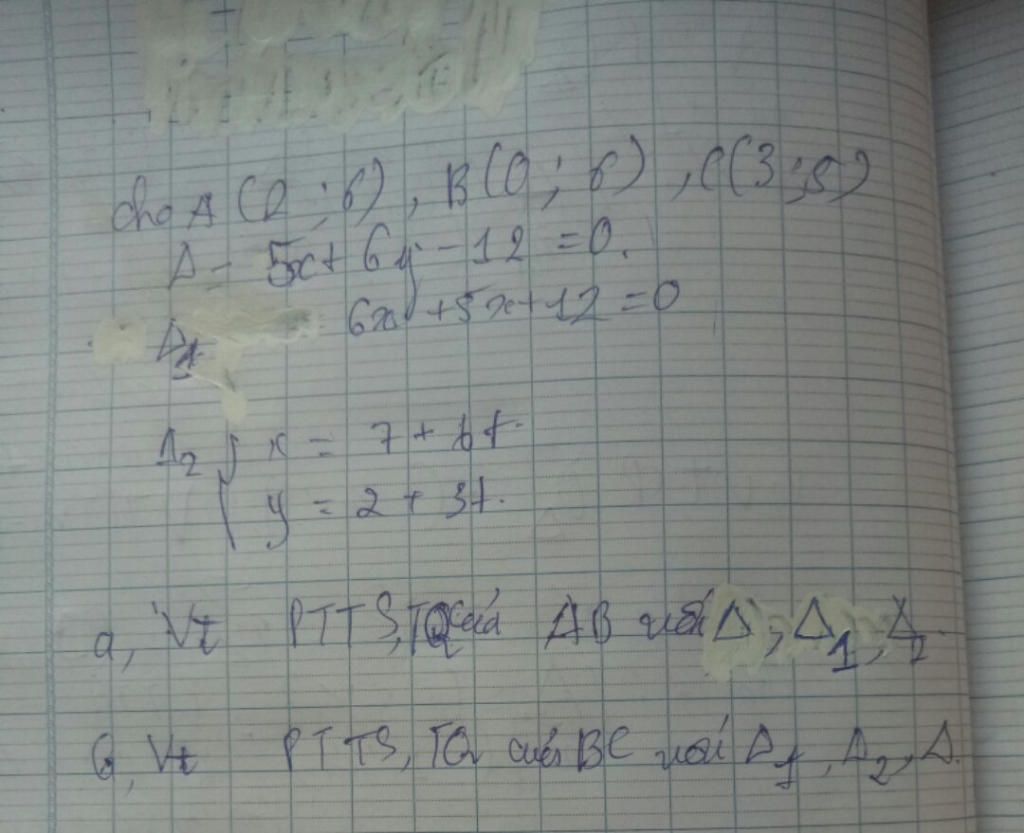 cho A (2 ; 6) , B (0 ; 6) , C (3 ; 5)
Δ - 5x + 6y - 12 = 0.
Δ1 6x + 5x + 12 = 0
Δ2 { x = 7 + 6t.
y = 2 + 3t.
a, Vt PTTS, TQ của AB với Δ, Δ1, Δ2
b, Vt PTTS, TQ của BC với Δ1, Δ2, Δ.